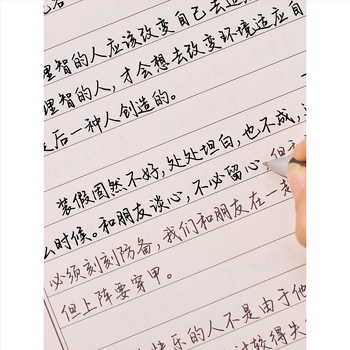 理智的人应该改变自己去适
理智的人，才会想去改变环境适应自
后一种人创造的。
装假固然不好，处处坦白，也不成，
么时候。和朋友谈心，不必留心，但
必须刻刻防备，我们和朋友在一起
但上阵要穿甲。
快乐的人不是由于他
计较得失